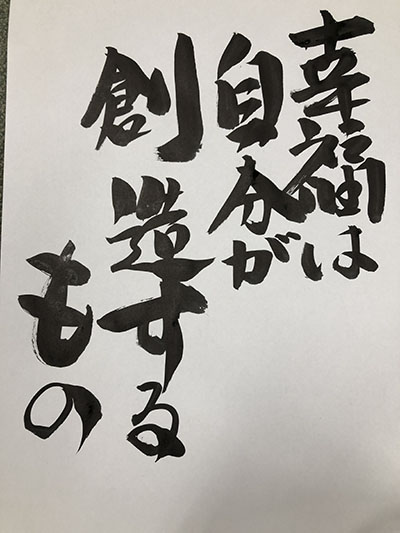 幸福は
自分が
創造する
もの